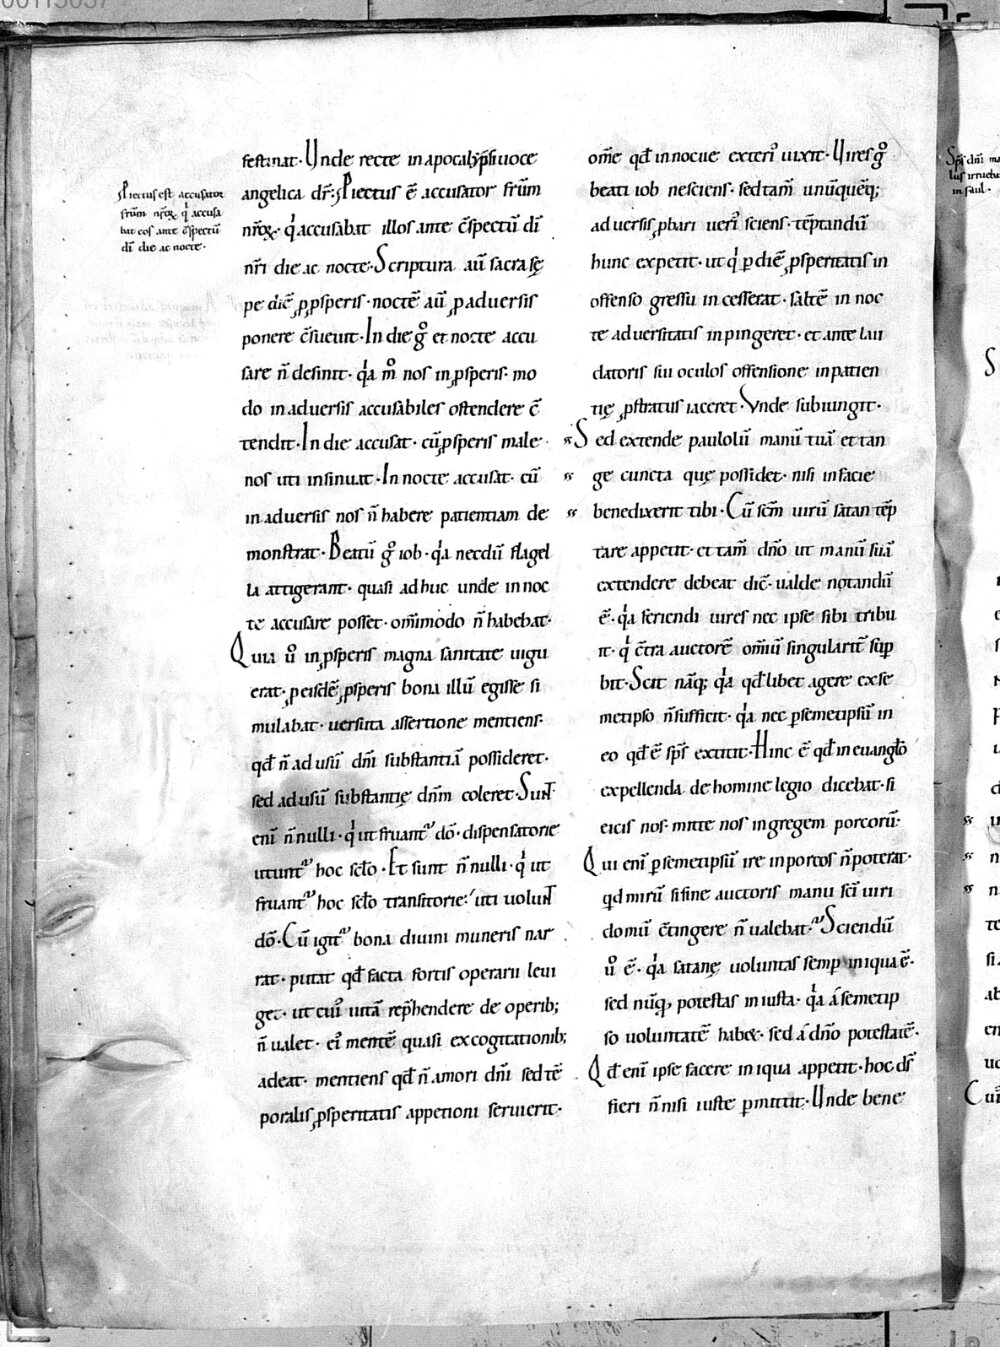 Piectus est accusator
frūm nr̄oꝝ qͥ accusa
bat eos ante c̄spectū
dī die ac nocte·
festinat· Unde recte in apocalẏpsi uoce
angelica dr̄· Piectus ē accusator frūm
nr̄oꝝ· qͥ accusabat illos ante c̄spectū dī
nr̄i die ac nocte· Scriptura aū sacra sę
pe diē ꝓ ꝓsperis· noctē aū ꝓ aduersis
ponere c̄sueuit· In die gͦ et nocte accu
sare n̄ desinit· qͥa mͦ nos in ꝓsperis· mo
do in aduersis accusabiles ostendere c̄
tendit· In die accusat· cū ꝓsperis male
nos uti insinuat· In nocte accusat· cū
in aduersis nos n̄ habere patientiam de
monstrat· Beatū gͦ iob· qͥa necdū flagel
la attigerant· quasi adhuc unde in noc
te accusare posset· om̄imodo n̄ habebat·
Quia ū in ꝓsperis magna sanitate uigu
erat· ꝑ eisdē ꝓsperis bona illū egisse si
mulabat· uersuta assertione mentiens·
qd̄ n̄ ad usū dn̄i substantiā possideret·
sed ad usū substantię dn̄m coleret· Sunt
eni n̄nulli· qͥ ut fruantᷣ dō· dispensatorie
utuntᷣ hoc sc̄lo· Et sunt n̄nulli· qͥ ut
fruantᷣ hoc sc̄lo transitorie uti uolunt
dō· Cū igitᷣ bona diuini muneris nar
rat· putat qd̄ facta fortis operarii leui
get· ut cuiꝰ uitā rep̄hendere de operib;
n̄ ualet· eiꝰ mentē quasi ex cogitationib;
adeat· mentiens qd̄ n̄ amori dn̄i sed tē
poralis ꝓsperitatis appetioni seruierit·
om̄e qd̄ innocue exteriꝰ uixit· Uires gͦ
beati iob nesciens· sed tam̄ unūquēq;
aduersis ꝓbari ueriꝰ sciens· tēptandū
hunc expetit· ut qͥ ꝑ diē ꝓsperitatis in
offenso gressu incesserat· saltē in noc
te aduersitatis inpingeret· et ante lau
datoris sui oculos offensione inpatien
tię ꝓstratus iaceret· Unde subiungit·
Sed extende paululū manū tuā et tan
ge cuncta quę possidet· nisi in facie
benedixerit tibi· Cū sc̄m uirū satan tēp
tare appetit· et tam̄ dn̄o ut manū suā
extendere debeat dic̄· ualde notandū
ē· qͥa feriendi uires nec ipse sibi tribu
it· qͥ c̄tra auctorē om̄iū singularit̄ suꝑ
bit· Scit nāq; qͥa qd̄libet agere ex se
metipso n̄ sufficit· qͥa nec ꝑ semetipsū in
eo qd̄ ē sps̄ extitit· Hinc ē qd̄ in euangl̄o
expellenda de homine legio dicebat· si
eicis nos· mitte nos in gregem porcorū·
Qui eni ꝑ semetipsū ire in porcos n̄ poterat·
qd mirū si sine auctoris manu sc̄i uiri
domū c̄tingere n̄ ualebat· Sciendū
ū ē· qͥa satanę uoluntas semꝑ iniqua ē·
sed nūꝗ̄ potestas iniusta· qͥa á semetip
so uoluntatē habet· sed á dn̄o potestatē·
Qd̄ eni ipse facere iniqua appetit· hoc ds̄
fieri n̄nisi iuste ꝑmittit· Unde bene